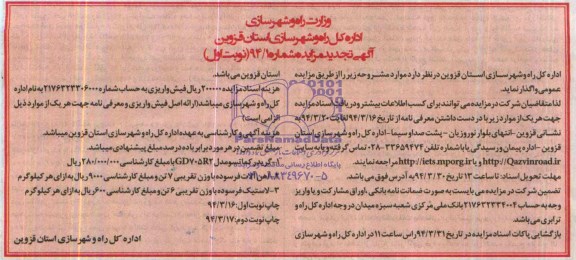 وزارت راه و شهرسازی
اداره کل راه و شهرسازی استان قزوین
آگهی تجدید مزایده شماره ۹۴/۱ (نوبت اول)
اداره کل راه و شهرسازی استان قزوین در نظر دارد موارد مشروحه زیر را از طریق مزایده
عمومی واگذار نماید.
لذا متقاضیان شرکت در مزایده می توانند برای کسب اطلاعات بیشتر و دریافت اسناد مزایده
جهت هر یک از موارد زیر با در دست داشتن معرفی نامه از تاریخ ۹۴/۳/۱۶ لغایت ۹۴/۳/۲۰ به
نشانی قزوین - انتهای بلوار نوروزیان - پشت صدا و سیما - اداره کل راه و شهرسازی استان
قزوین - اداره پیمان و رسیدگی با شماره تلفن ۳۳۶۵۹۴۷۴-۰۲۸ تماس گرفته و یا به سایت
http://Qazvinroad.ir و یا http://iets.mporg.ir مراجعه نمایند.
مهلت تحویل اسناد: تا ساعت ۱۳ تاریخ ۹۴/۳/۳۰ می باشد.
تضمین شرکت در مزایده می بایست به صورت ضمانت نامه بانکی، اوراق مشارکت و یا واریز
وجه به حساب ۲۱۷۶۴۳۲۳۳۴۰۰۴ بانک ملی مرکزی شعبه سبزه میدان در وجه اداره کل راه و
ترابری می باشد.
بازگشایی پاکات اسناد مزایده در تاریخ ۹۴/۳/۳۱ راس ساعت ۱۱ در اداره کل راه و شهرسازی
استان قزوین می باشد.
هزینه اسناد مزایده ۲۰۰۰۰۰ ریال فیش واریزی به حساب شماره ۲۱۷۶۴۲۳۳۰۶۰۰۰ به نام اداره
کل راه و شهرسازی میباشد (ارائه اصل فیش واریزی و معرفی نامه جهت هر یک از موارد ذیل
الزامی است)
هزینه آگهی و کارشناسی به عهده اداره کل راه و شهرسازی استان قزوین میباشد.
مبلغ تضمین در هر مورد برابر با ده درصد مبلغ پیشنهادی میباشد.
۳-لاستیک فرسوده با وزن تقریبی ۶ تن و مبلغ کارشناسی ۶۰۰ ریال به ازای هر کیلوگرم
چاپ نوبت اول: ۹۴/۳/۱۶
چاپ نوبت دوم: ۹۴/۳/۱۷
اداره کل راه و شهرسازی استان قزوین
ParsNamadData